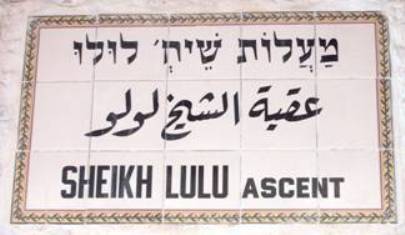 מַעֲלוֹת שֵׁיח׳ לוּלוּ
عقبة الشيخ لولو
SHEIKH LULU ASCENT